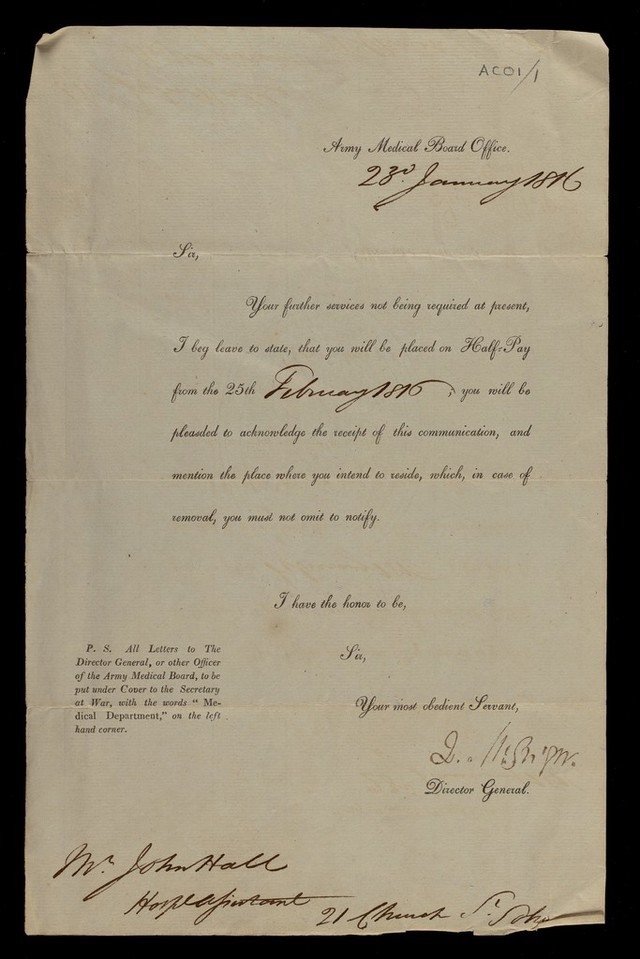 ACO1/1
Army Medical Board Office.
23d. January 1816
Sir,
Your further services not being required at present,
I beg leave to state, that you will be placed on Half-Pay
from the 25th February 1816; you will be
pleasded to acknowledge the receipt of this communication, and
mention the place where you intend to reside, which, in case of
removal, you must not omit to notify.
I have the honor to be,
Sir,
Your most obedient Servant,
Director General.
P. S. All Letters to The
Director General, or other Officer
of the Army Medical Board, to be
put under Cover to the Secretary
at War, with the words “ Me-
dical Department,” on the left
hand corner.
Mr. John Hall
Hospl Assistant
21 Church St.